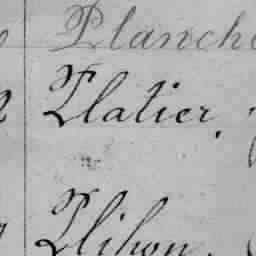 Planche
Platier.
Plihon.